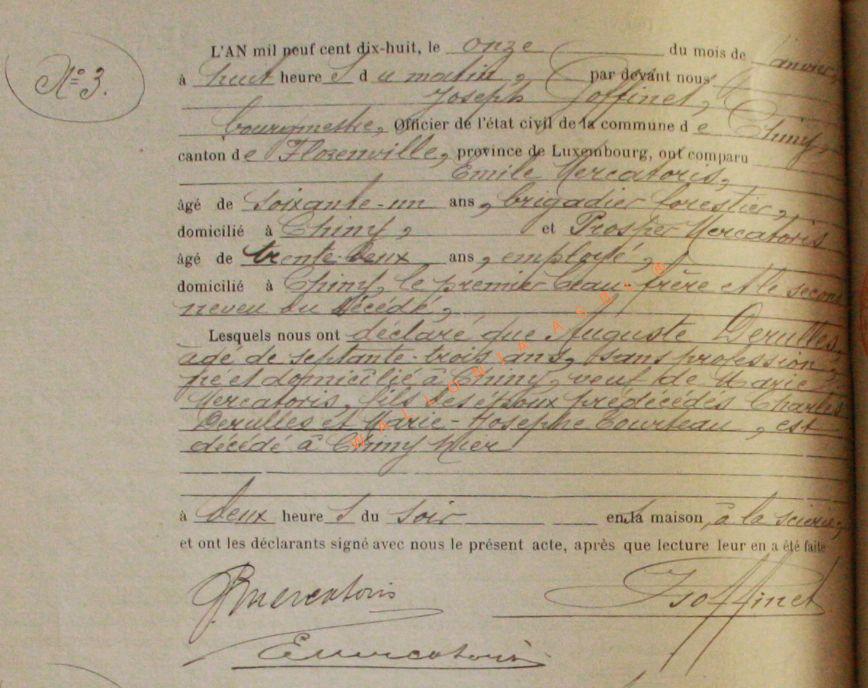 N° 3.
L'AN mil neuf cent dix-huit, le onze du mois de janvier,
à huit heure s du matin, par devant nous
Joseph Goffinet,
bourgmestre, Officier de l'état civil de la commune de Chiny,
canton de Florenville, province de Luxembourg, ont comparu
Emile Mercatoris,
âgé de soixante-un ans, brigadier forestier,
domicilié à Chiny, et Prosper Mercatoris
âgé de trente-deux ans, employé,
domicilié à Chiny, le premier beau-frère et le second
neveu du décédé,
Lesquels nous ont déclaré que Auguste Derulles,
agé de septante-trois ans, sans profession,
né et domicilié à Chiny, veuf de Marie
Mercatoris, fils des époux prédécédés Charles
Derulles et Marie-Josephe Tourteau, est
décédé à Chiny hier
à deux heure s du soir en sa maison, à la scierie,
et ont les déclarants signé avec nous le présent acte, après que lecture leur en a été faite
PMercatoris JGoffinet
EMercatoris
WALLONIA ASBL